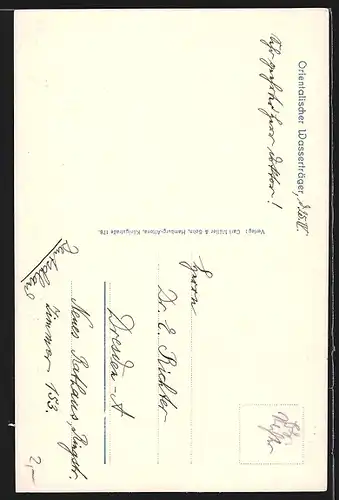 Orientalischer Wasserträger,
Sehr geehrter Herr Doktor!
Verlag: Carl Müller & Sohn, Hamburg-Altona, Königstraße 178.
Herrn
Dr. E. Richter
Dresden-A
Neues Rathaus, Ringstr.
Zimmer 153.
Deutschland
2,-